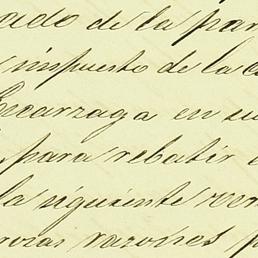 ado de la par
impuesto de la c
Encarzaga en su
para rebatir
la siguiente ver
razones p